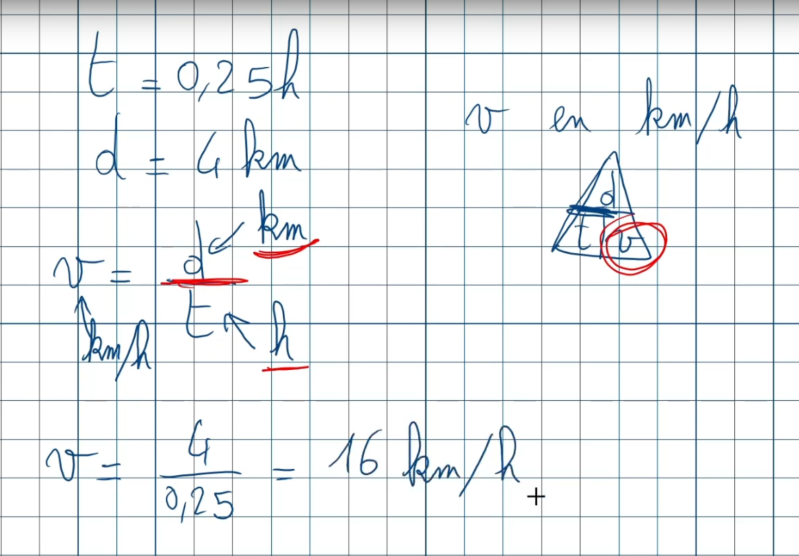 t = 0,25h
d = 4 km
v en km/h
d
t v
v = d/t
km
h
km/h
v = 4/0,25 = 16 km/h